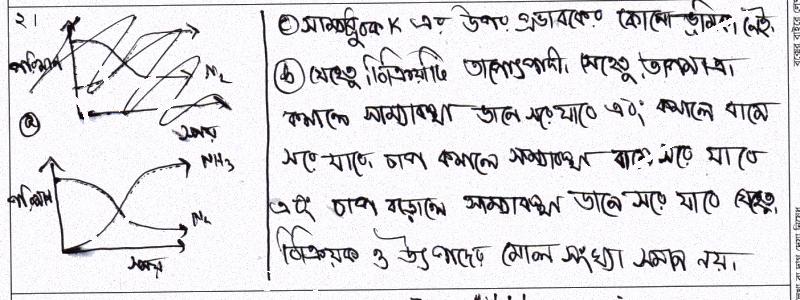 ২।
পরিমাণ
N₂
সময়
ⓐ
পরিমাণ
NH₃
N₂
সময়
ⓒ সাম্যধ্রুবক K এর উপর প্রভাবকের কোনো ভূমিকা নেই।
ⓑ যেহেতু বিক্রিয়াটি তাপোৎপাদী, সেহেতু তাপমাত্রা
কমালে সাম্যাবস্থা ডানে সরে যাবে এবং কমালে বামে
সরে যাবে। চাপ কমালে সাম্যাবস্থা বামে সরে যাবে
এবং চাপ বাড়ালে সাম্যাবস্থা ডানে সরে যাবে যেহেতু,
বিক্রিয়ক ও উৎপাদের মোল সংখ্যা সমান নয়।